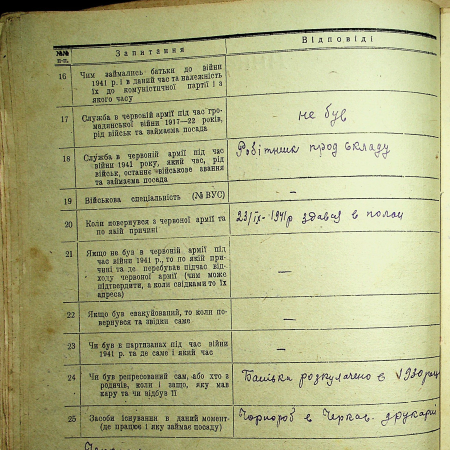 №№ п-п.
Запитання
Відповіді
16 Чим займались батьки до війни
1941 р. і в даний час та належність
їх до комуністичної партії і з
якого часу
17 Служба в червоній армії під час гро-
мадянської війни 1917—22 років,
рід військ та займаєма посада
не був
18 Служба в червоній армії під час
війни 1941 року, який час, рід
військ, останнє військове звання
та займаєма посада
Робітник прод складу
19 Військова спеціальність (№ ВУС)
—
20 Коли повернувся з червоної армії та
по якій причині
23/ІХ-1941р здався в полон
21 Якщо не був в червоній армії під
час війни 1941 р., то по якій при-
чині та де перебував підчас від-
ходу червоної армії (чим може
підтвердити, а коли свідками то їх
адреса)
—
22 Якщо був евакуйований, то коли по-
вернувся та звідки саме
—
23 Чи був в партизанах під час війни
1941 р. та де саме і який час
—
24 Чи був репресований сам, або хто з
родичів, коли і защо, яку мав
кару та чи відбув її
Батьки розкулачено в 1930 році
25 Засоби існування в даний момент
(де працює і яку займає посаду)
Чорнороб в Черкас. друкарні